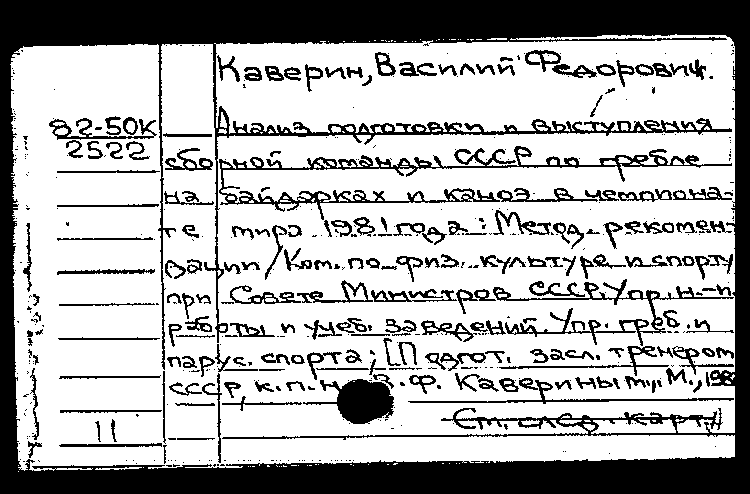 Каверин, Василий Федорович.
82-50К
2522
Анализ подготовки и выступления
сборной команды СССР по гребле
на байдарках и каноэ в чемпиона-
те мира 1981 года : Метод. рекомен-
дации / Ком. по физ. культуре и спорту
при Совете Министров СССР. Упр. н.-и.
работы и учеб. заведений. Упр. греб. и
парус. спорта ; [Подгот. засл. тренером
СССР, к.п.н. В.Ф. Кавериным]., М.,
См. след. карт.
11